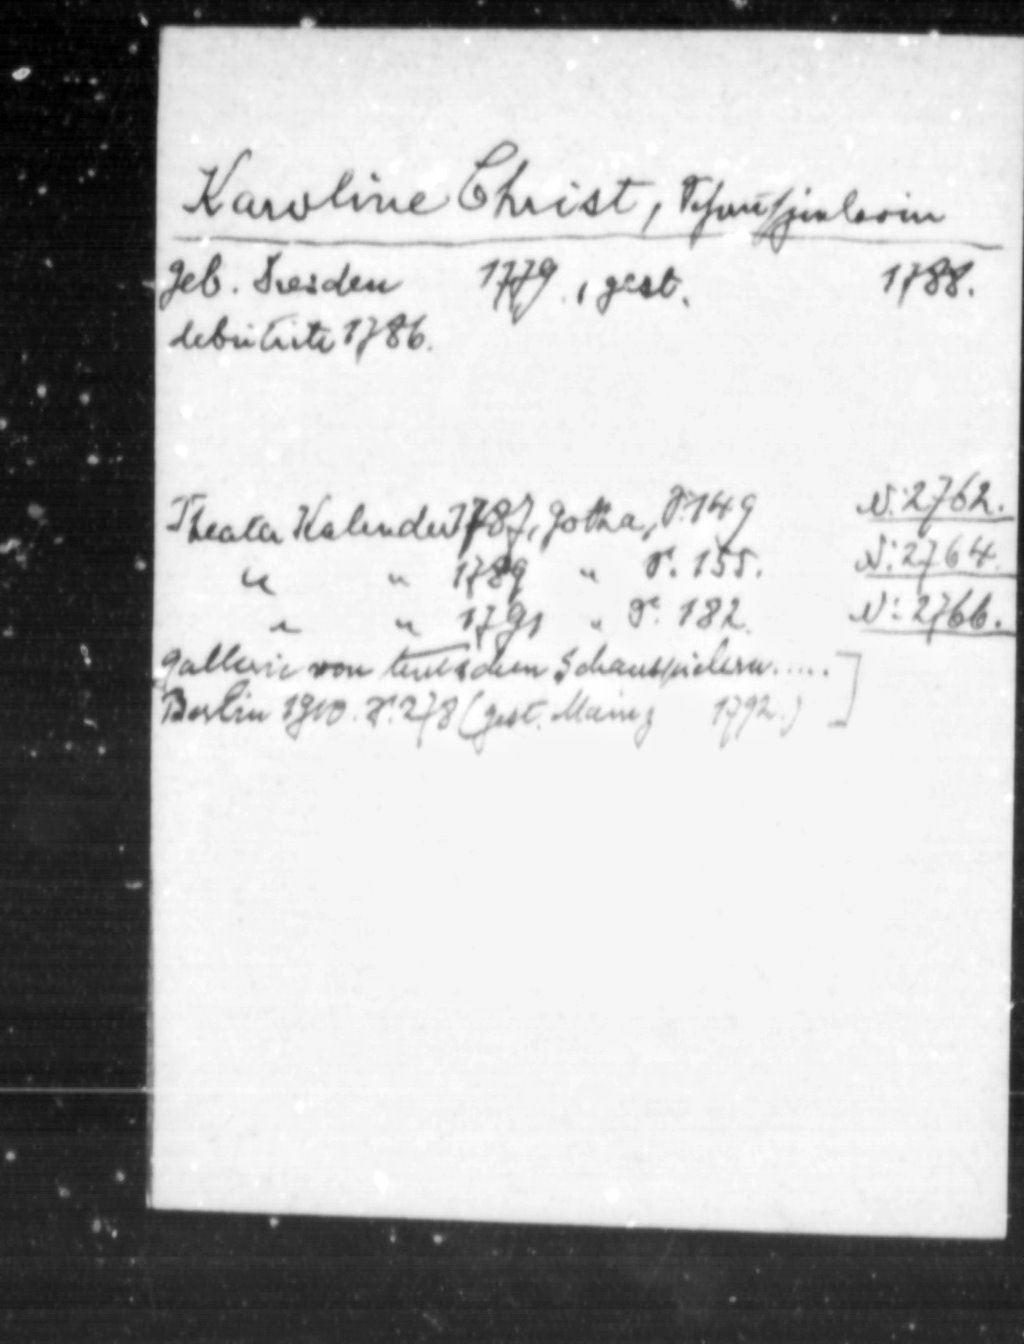 Karoline Christ, Schauspielerin
geb. Dresden 1779, gest. 1788.
debutirte 1786.
Theater Kalender 1787, Gotha, S. 149 N: 2762.
" " 1789 " S. 155. N: 2764.
" " 1791 " S. 182. N: 2766.
Gallerie von teutschen Schauspielern.....
Berlin 1910. S. 278 (gest. Mainz 1792.)